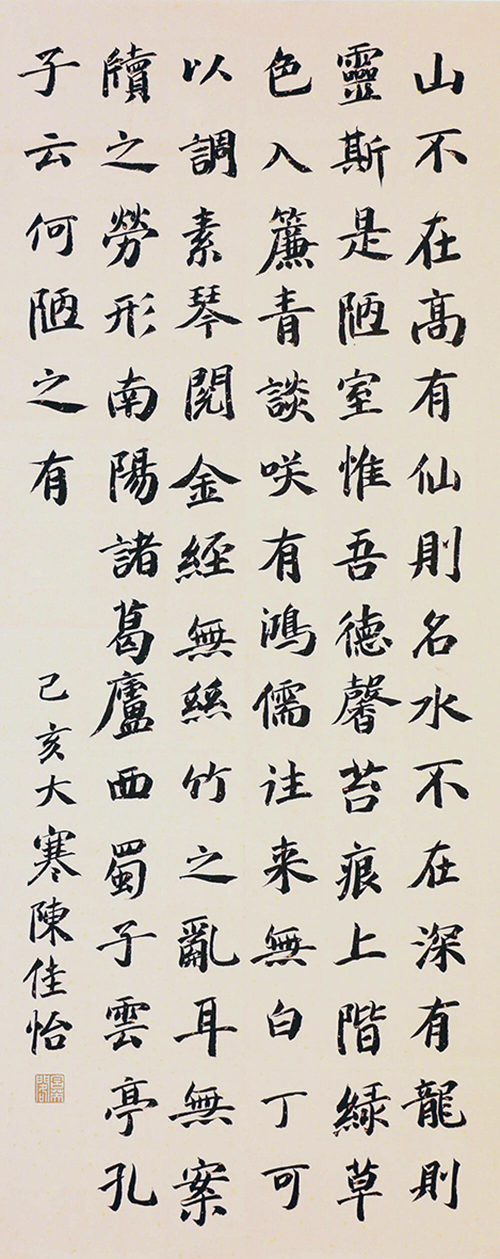 山不在髙有仙則名水不在深有龍則
靈斯是陋室惟吾德馨苔痕上階緑草
色入簾青談咲有鴻儒往来無白丁可
以調素琴閲金經無絲竹之亂耳無案
牘之勞形南陽諸葛廬西蜀子雲亭孔
子云何陋之有
己亥大寒陳佳怡